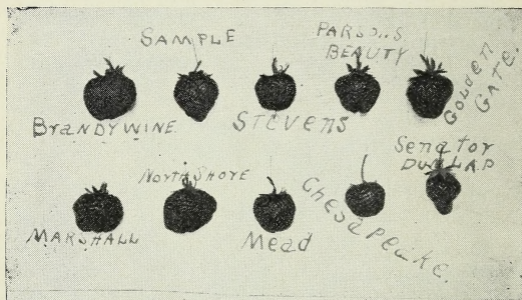 SAMPLE
PARSONS
BEAUTY
GOLDEN
GATE.
BRANDYWINE
STEVENS
SENATOR
DUNLAP
NORTH SHORE
MARSHALL
Mead
Chesapeake.